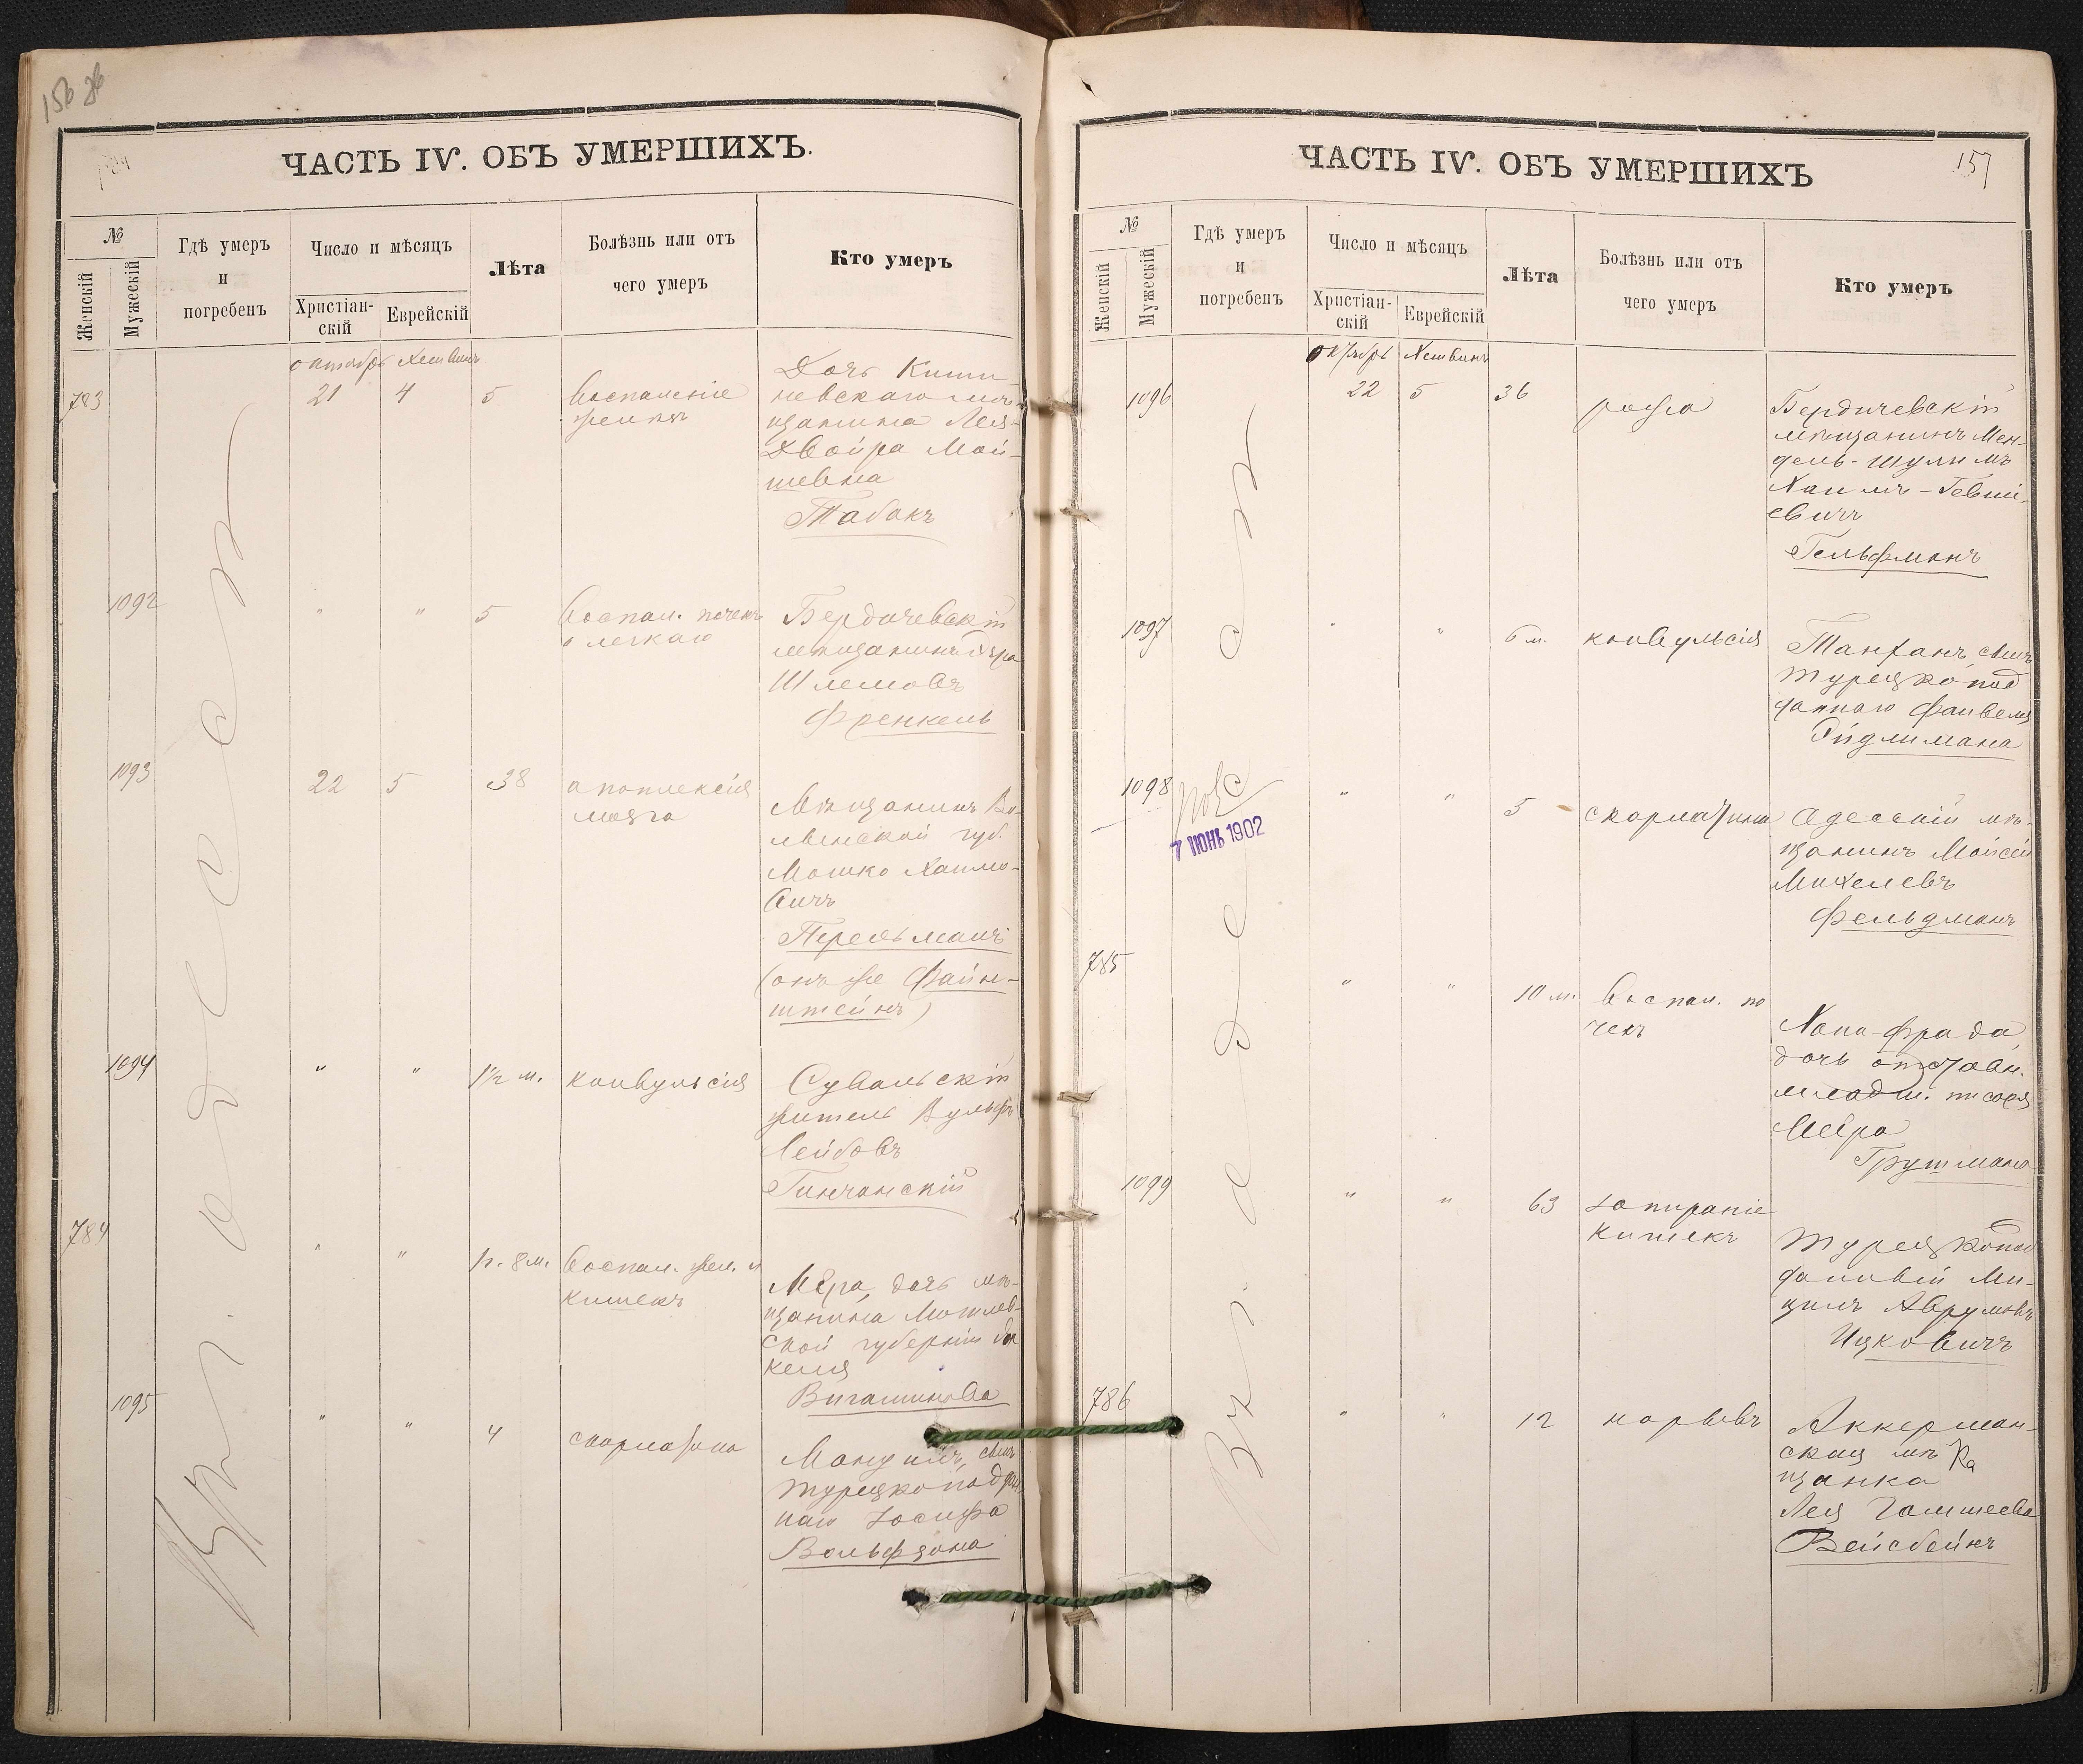 156 об
ЧАСТЬ IV. ОБЪ УМЕРШИХЪ.
№
Женскій
Мужескій
Гдѣ умеръ
и
погребенъ
Число и мѣсяцъ
Христіан-
скій
Еврейскій
Лѣта
Болѣзнь или отъ
чего умеръ
Кто умеръ
октябрь Хешвинъ
Въ г. Одессѣ
783 21 4 5 Воспаленіе
Дочь Киши-
невскаго мѣ-
щанина Лея-
Двойра Мой-
шевна
Табакъ
1092 " " 5 Воспал. почекъ
и легкаго
Бердичевскій
мѣщанинъ
Шлемовъ
Френкель
1093 22 5 38 апоплексія
мозга
Мѣщанинъ Во-
лынской губ.
Мошко Хаимо-
вичъ
Перельманъ
(онъ же Файн-
штейнъ)
1094 " " 1½ м. конвульсія
Сувальскій
житель Вульфъ
Лейбовъ
Гинчанскій
784 " " 1г. 8м. Воспал. жел. и
кишекъ
Мера, дочь мѣ-
щанина Могилев-
ской губерніи
1095 " " 4 скарлатина
сынъ
турецкоподдан
наго Іосифа
Вольфзона
157
ЧАСТЬ IV. ОБЪ УМЕРШИХЪ
№
Женскій
Мужескій
Гдѣ умеръ
и
погребенъ
Число и мѣсяцъ
Христіан-
скій
Еврейскій
Лѣта
Болѣзнь или отъ
чего умеръ
Кто умеръ
октябрь Хешвинъ
Въ г. Одессѣ
1096 22 5 36 рожа
Бердичевскій
мѣщанинъ Мен-
дель-Шулимъ
Хаимъ-Гевши-
евичъ
Гельфманъ
1097 " " 6 м. конвульсія
сынъ
турецкопод
даннаго Файвеля
1098 " " 5 скарлатина
7 ІЮНЬ 1902
Одесскій мѣ-
щанинъ Мойсей
Михелевъ
Фельдманъ
785 " " 10 м. Воспал. по
чекъ
Хана-Фрада,
дочь отставн.
младш. писаря
Меера
Грутмана
1099 " " 63 запираніе
кишекъ
Турецкопод
данный
Аврумовъ
Ицковичъ
786 " " 12 нарывъ
Аккерман-
ская мѣ
щанка
Лея
Вейсбейнъ